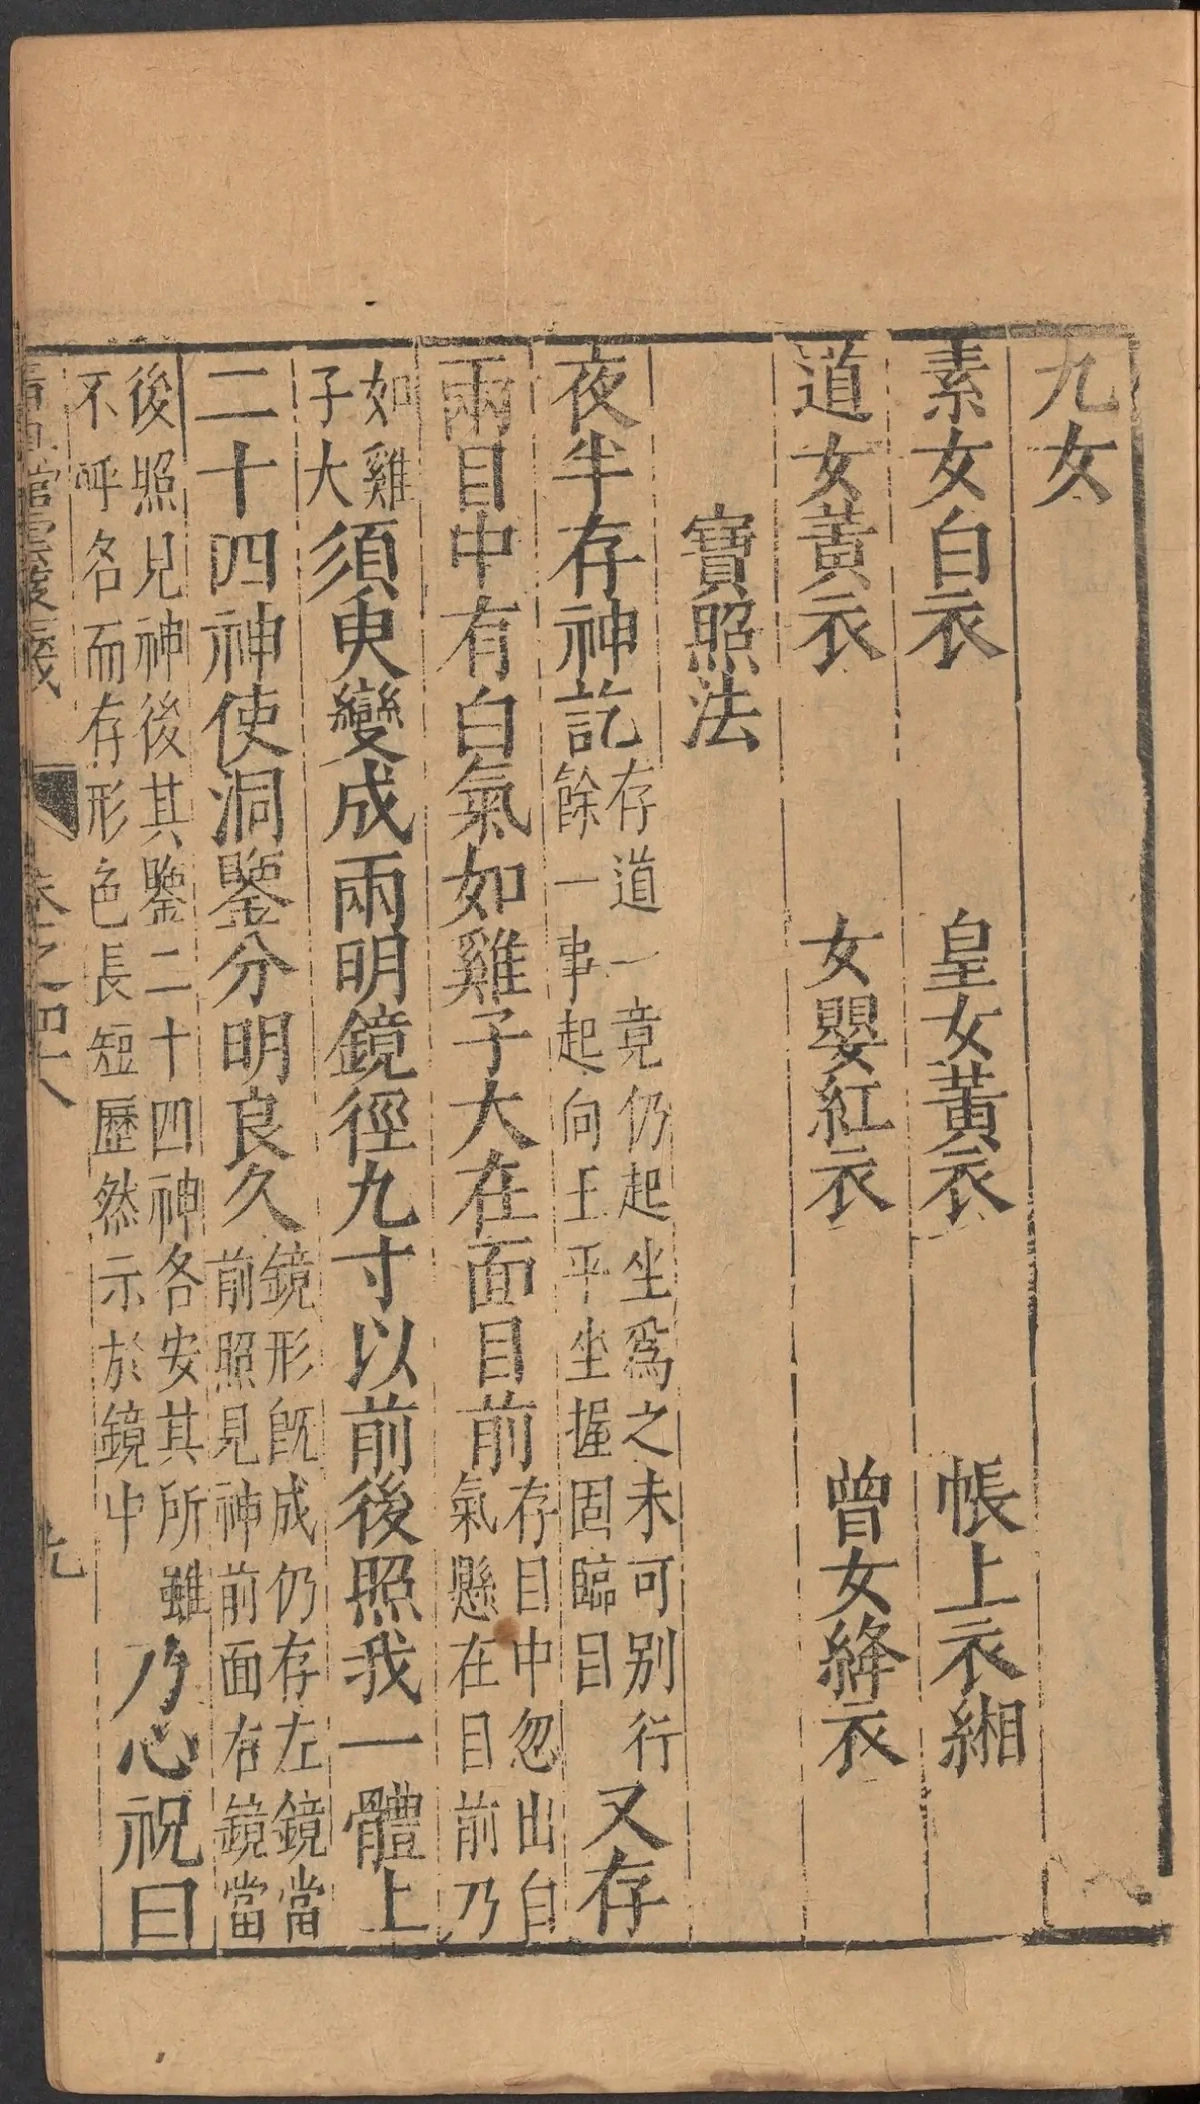 九女
素女白衣　皇女黃衣　帳上衣緗
道女黃衣　女嬰紅衣　曾女絳衣
寶照法
夜半存神訖存道一竟仍起坐爲之未可別行餘一事起向王平坐握固臨目又存
兩目中有白氣如雞子大在面目前存目中忽出自氣懸在目前乃
如雞子大須臾變成兩明鏡徑九寸以前後照我一體上
二十四神使洞鑒分明良久鏡形旣成仍存左鏡當前照見神前面右鏡當
後照見神後其鑒二十四神各安其所雖不呼名而存形色長短歷然示於鏡中乃心祝曰
卷之四十八　九